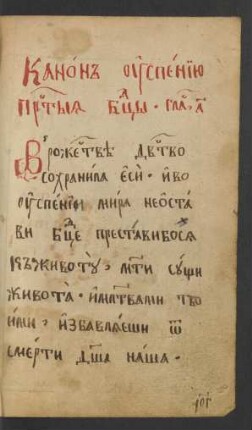 Канѡ́нъ ᲂу҆спе́нїю
прⷭ҇тыѧ бцⷣы · гла́ · а҃
В рожⷭ҇твѣ̀ двⷭ҇тво
сохранила є҆сѝ · и҆ во
ᲂу҆спе́нїи мира неѡ҆ста
ви бцⷣе преставибосѧ
къ животꙋ̀ , мт҃и сꙋ́щи
живота̀ · и҆ млт҃вами тво
и́ми , и҆збавлѧ́еши ѿ
смерти дш҃а наша ·